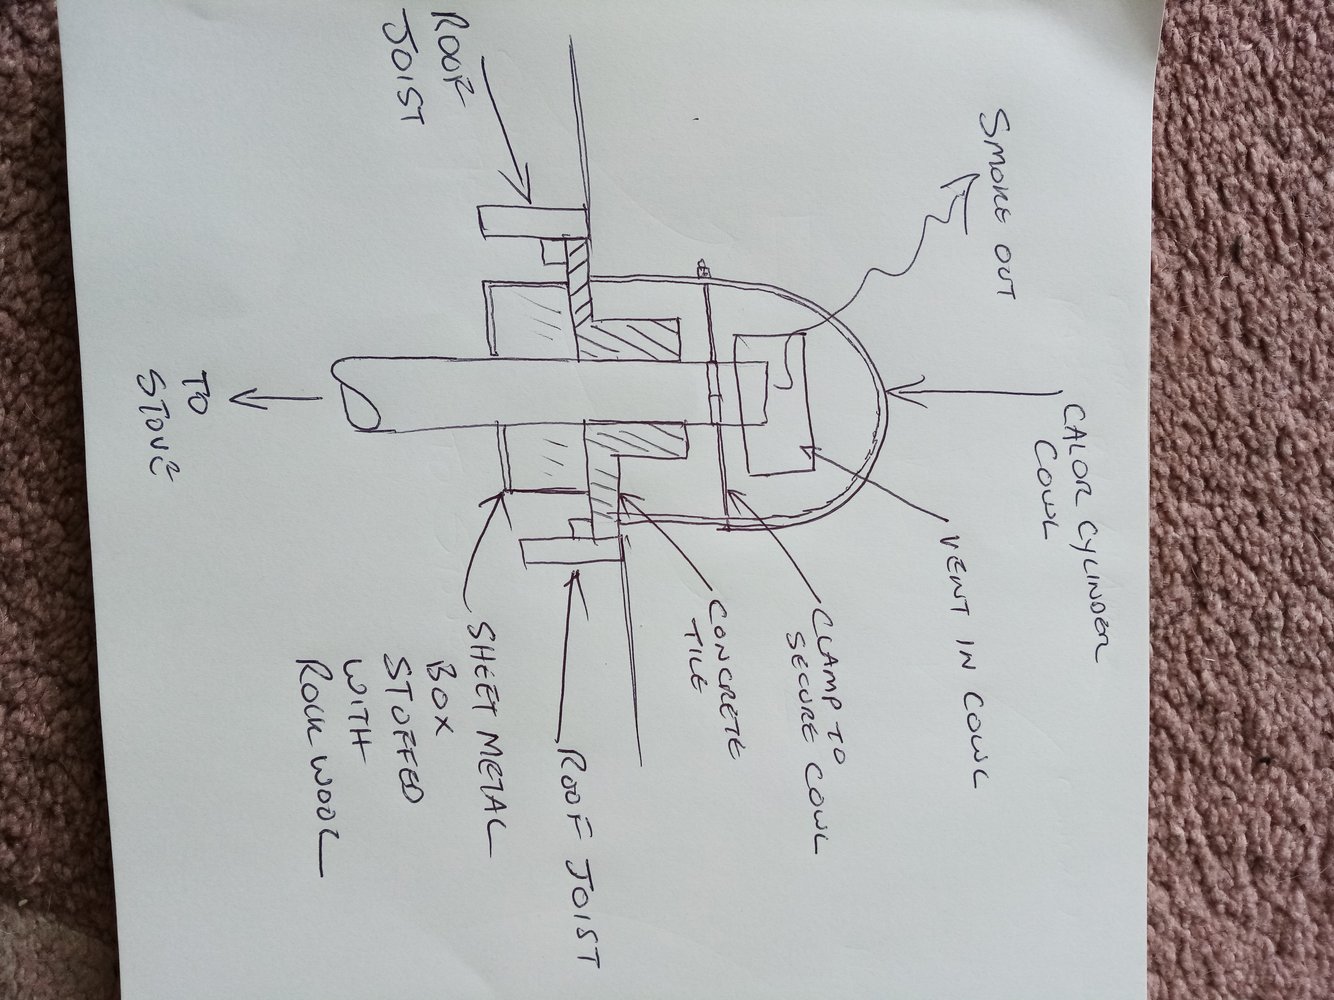 CALOR CYLINDER
COWL
SMOKE OUT
VENT IN COWL
CLAMP TO
SECURE COWL
CONCRETE
TILE
ROOF
JOIST
ROOF JOIST
SHEET METAL
BOX
STUFFED
WITH
ROCKWOOL
TO
STOVE